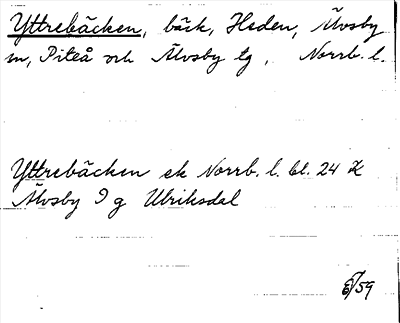 Yttrebäcken, bäck, Heden, Älvsby
sn, Piteå och Älvsby tg, Norrb. l.
Yttrebäcken ek Norrb. l. bl. 24 X
Älvsby 9 g Ulriksdal
/59